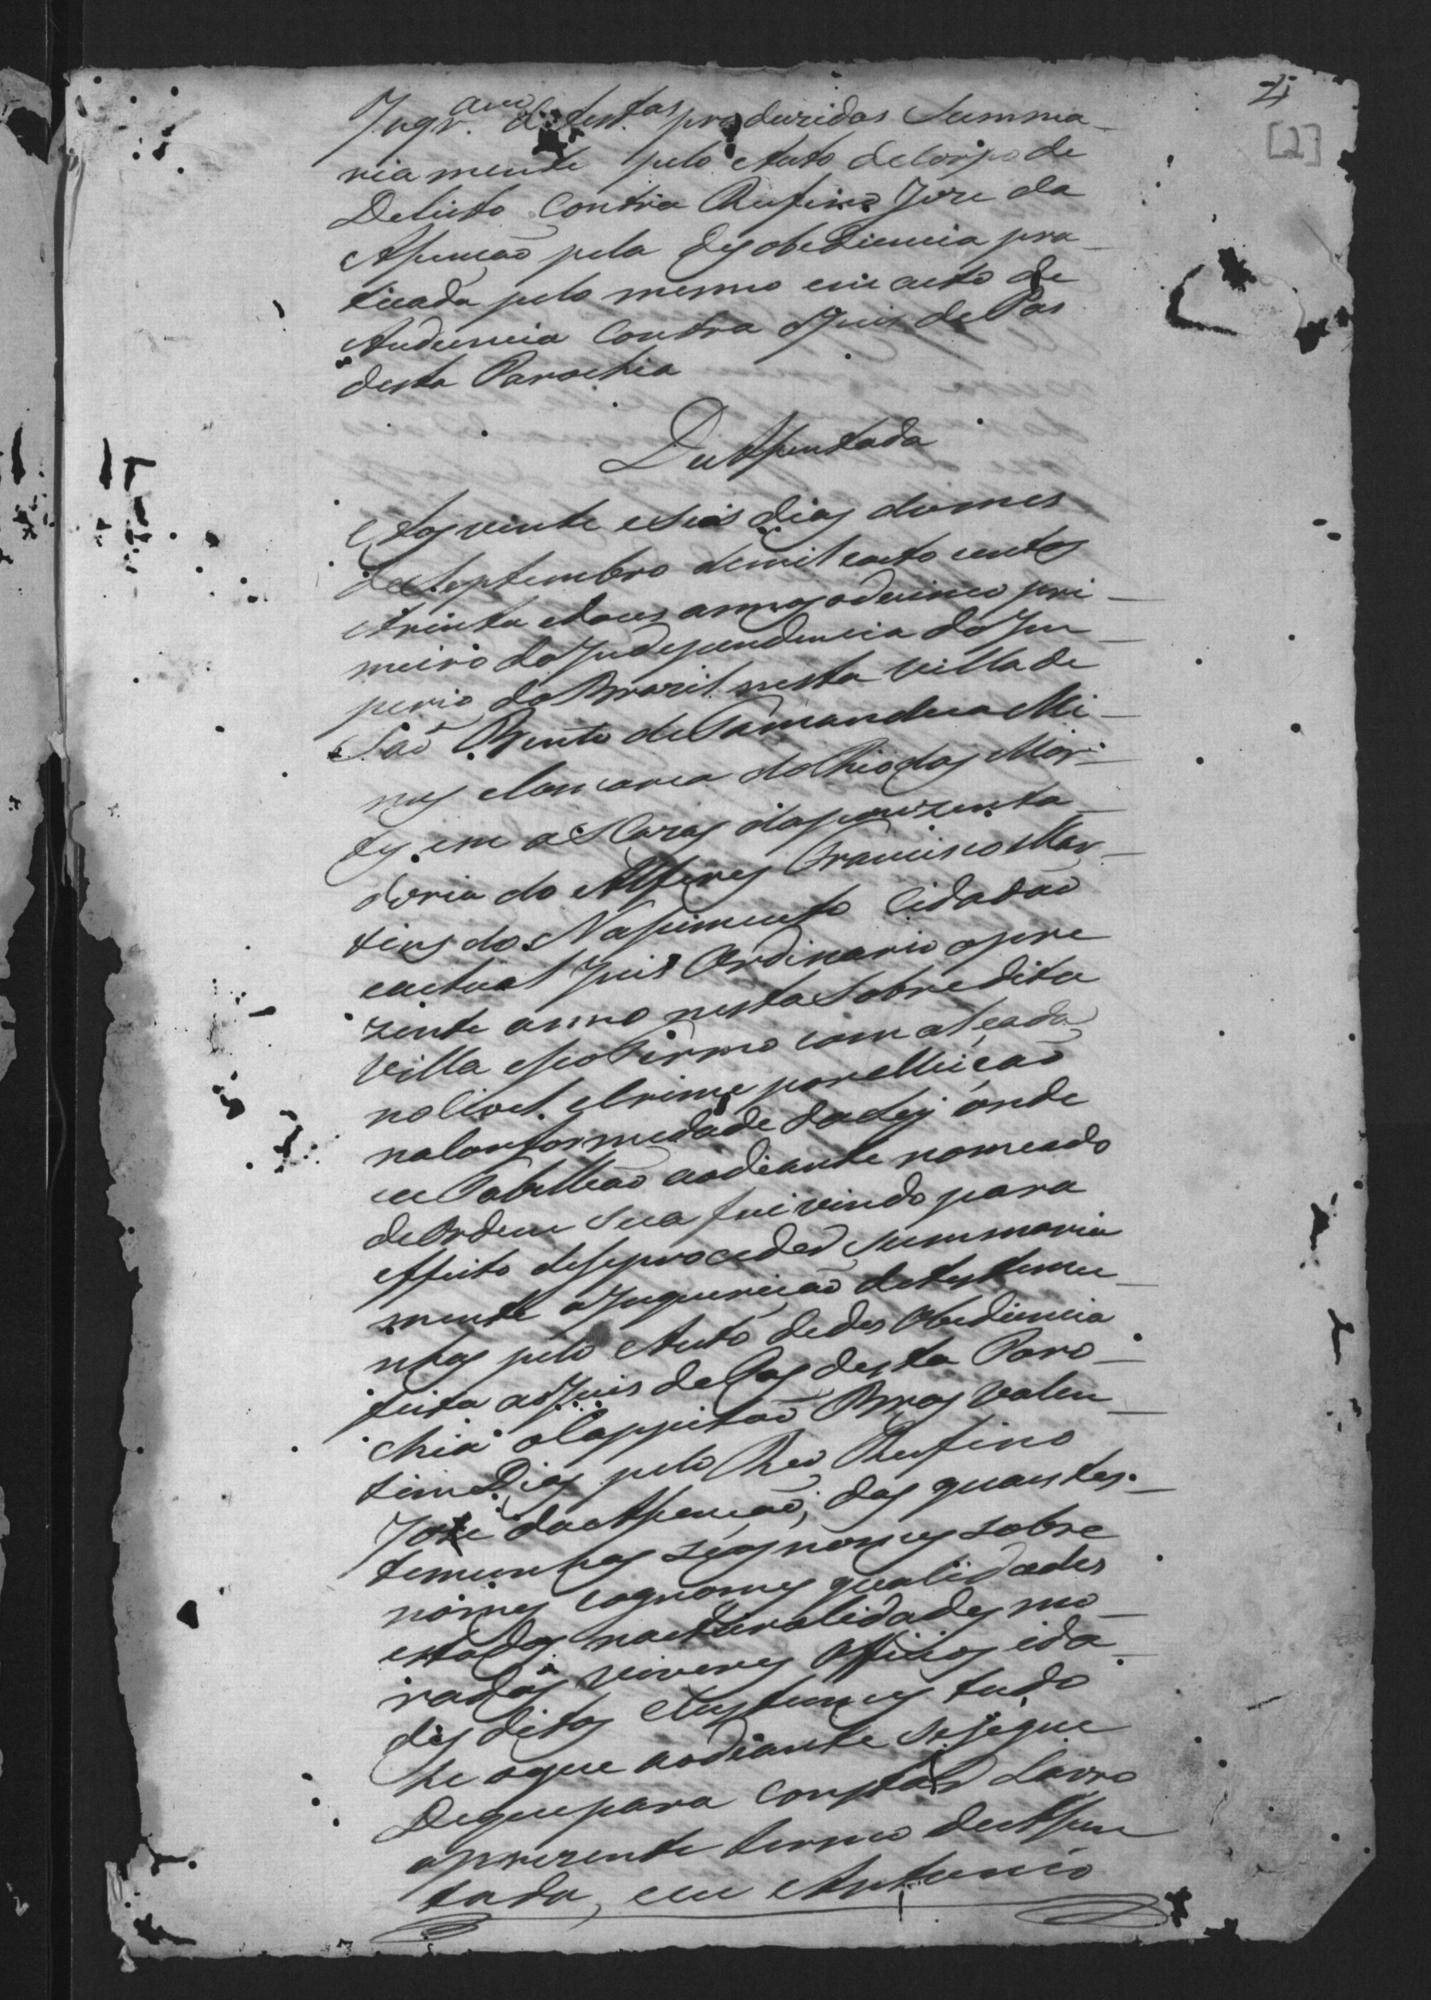 4
[2]
Inqr.am de test.as produzidas Summa-
riamente pelo Auto de Corpo de
Delicto Contra Rufino Joze da
Asumcaõ pela desobediencia pra-
ticada pelo mesmo em acto de
Audiencia Contra o Juis de Pas
desta Parochia
De Asentada
Aos vinte e seis dias do mes
de Septembro de mil e oito centos
e trinta e dous annos o decimo pri-
meiro da Independencia do Im-
perio do Brazil nesta Villa de
Saõ Bento de Tamandua Mi-
nas e Comarca do Rio das Mor-
tes em as Cazas da
do Alferes Francisco Mar-
tins do Nasimento Cidadaõ
e actual Juis Ordinario o pre
zente anno nesta Sobredita
Villa e seo Termo com alçada
no Civel e Crime por elleicaõ
na Conformedade da Ley onde
eu Tabelliaõ aodiante nomeado
de Ordem Sua fui vindo para
effeito de se proceder summaria
mente a Inquericaõ de testemu-
nhas pelo Auto de des Obediencia
feita ao Juis de Pas desta Paro-
chia o Cappitaõ Bras Valen-
tim Dias pelo Reo Rufino
Joze da Asumcaõ, das quais tes-
temunhas seos nomes sobre
nomes cognomes qualidades
estados naturalidades mo-
radas viveres officios ida-
des ditos e Custumes tudo
he o que aodiante se segue
De que para constar Lavro
o prezente termo de Asen
tada, eu Antonio